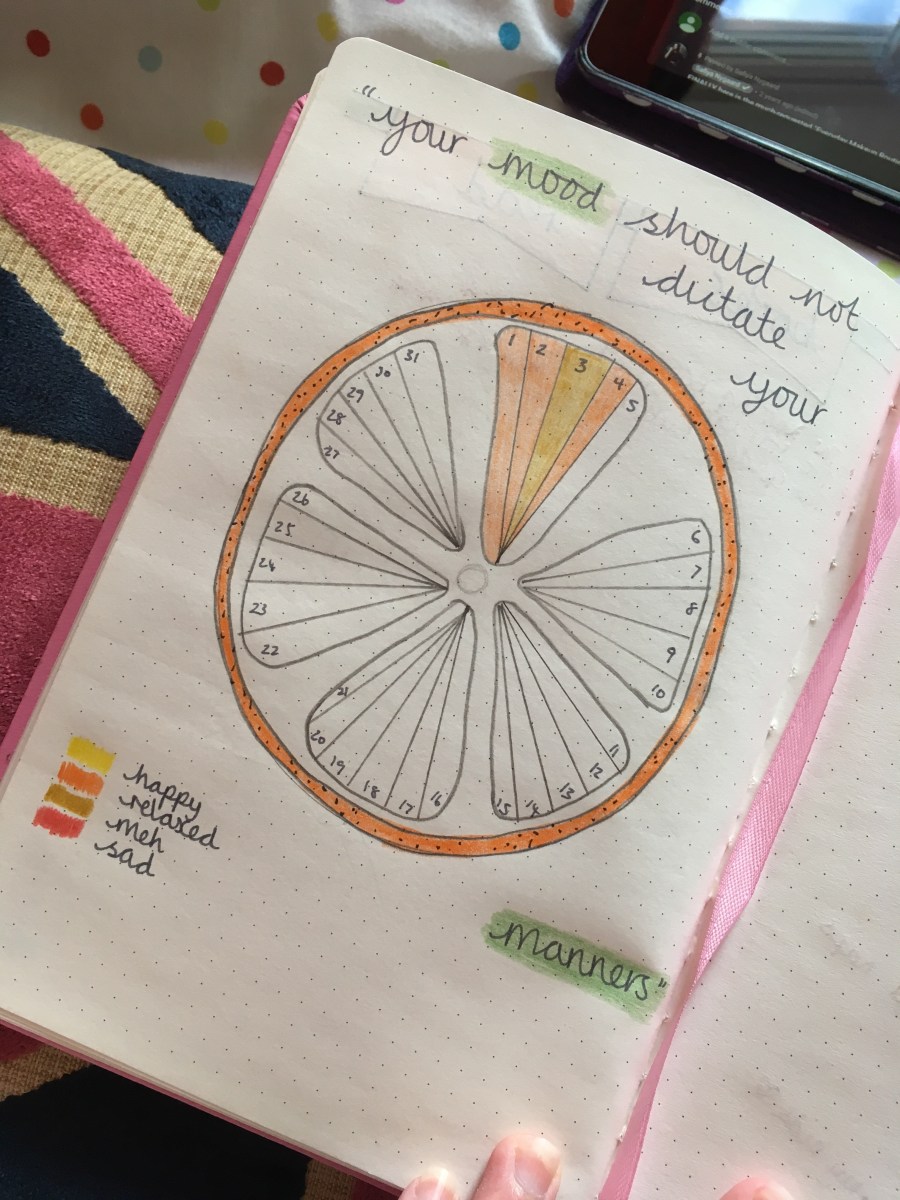 "your mood should not
dictate
your
1 2 3 4 5
6
7
8
9
10
11
12
13
14
15
16
17
18
19
20
21
22
23
24
25
26
27
28
29
30
31
happy
relaxed
meh
sad
manners"